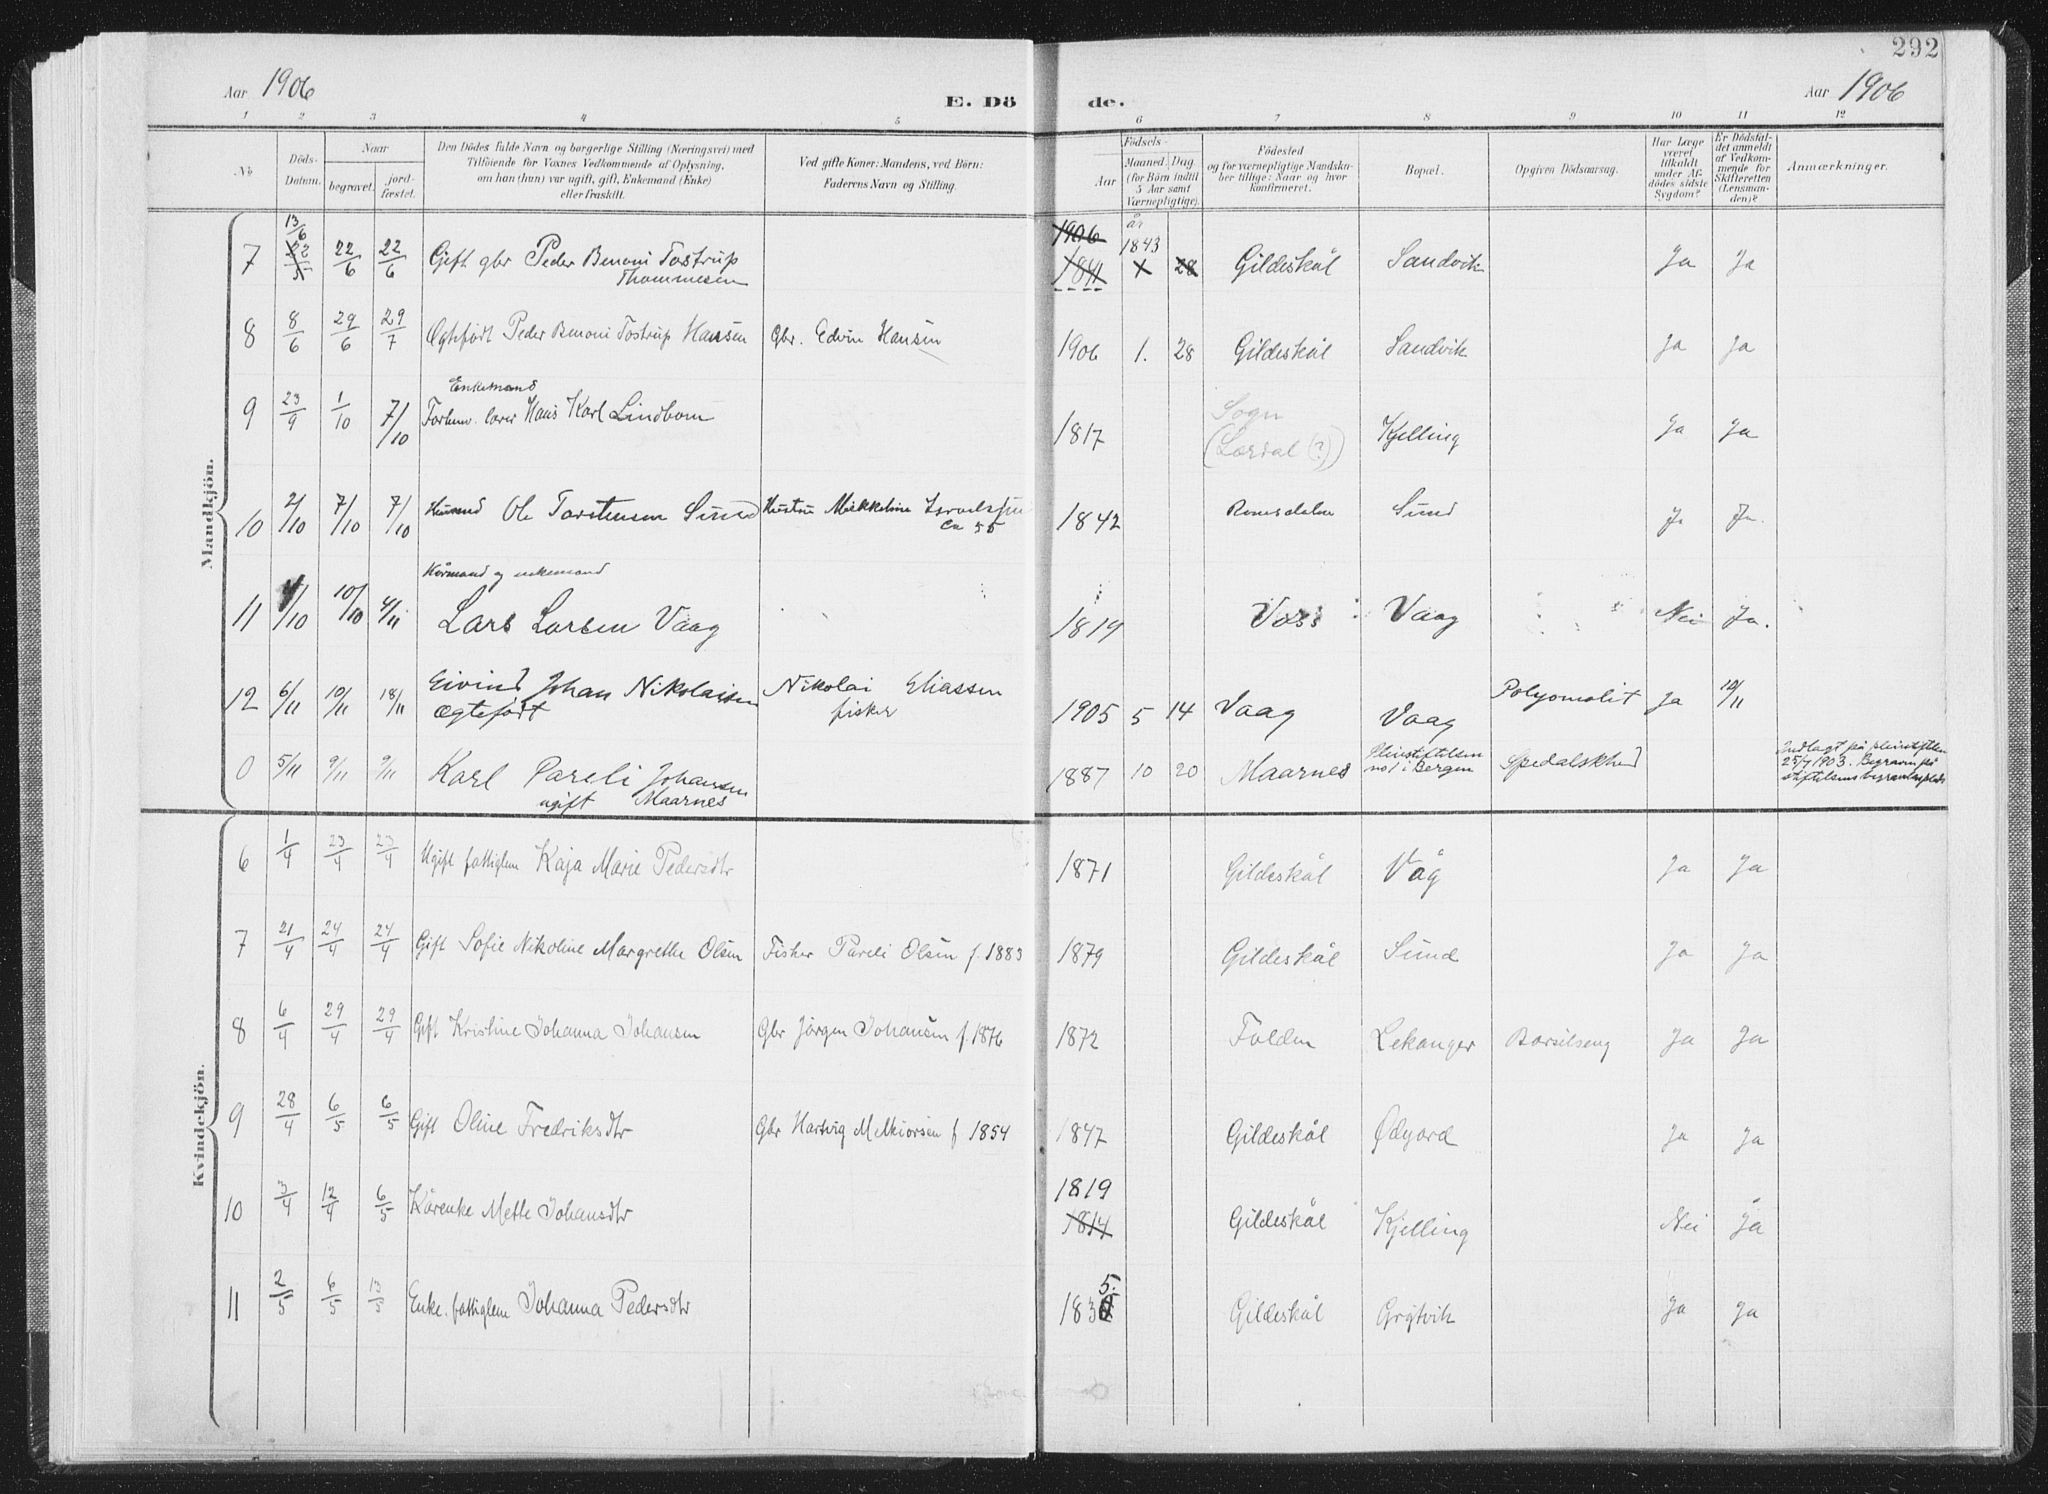 292
Aar 1906
E. Dö
de.
Aar 1906
1 2 3 4 5 6 7 8 9 10 11 12
No
Döds-
Datum.
Naar
begravet.
jord-
fæstet.
Den Dödes fulde Navn og borgerlige Stilling (Næringsvei) med
Tilföiende for Voxnes Vedkommende af Oplysning,
om han (hun) var ugift, gift, Enkemand (Enke)
eller fraskilt.
Ved gifte Koner: Mandens, ved Börn:
Faderens Navn og Stilling.
Födsels-
Aar
Maaned. Dag.
(for Börn indtil
5 Aar samt
Værnepligtige).
Födested
og for værnepligtige Mandska-
ber tillige: Naar og hvor
konfirmeret.
Bopæl.
Opgiven Dödsaarsag.
Har Læge
været
tilkaldt
under Af-
dödes sidste
Sygdom?
Er Dödsfal-
det anmeldt
af Vedkom-
mende for
Skifteretten
(Lensman-
den)?
Anmærkninger.
Mandkjön.
13/6
7 22/5 22/6 22/6 Gift gbr Peder Benoni Tostrup
Thommesen
1906 år
1843
1841 28 Gildeskål Sandvik Ja Ja
8 8/6 29/6 29/7 Ægtefødt Peder Benoni Tostrup Hansen Gbr. Edvin Hansen 1906 1. 28 Gildeskål Sandvik Ja Ja
Enkemand
9 23/9 1/10 7/10 Forhenv. lærer Hans Karl Lindbom 1817 Sogn
(Lærdal (?)) Kjelling Ja Ja
10 2/10 7/10 7/10 Ole Torstensen Sund Hustru Mikkeline
Ca 55
1842 Romsdalen Sund Ja Ja.
Kårmand og enkemand
11 4/10 10/10 4/11 Lars Larsen Vaag 1819 Voss Vaag Nei Ja.
12 6/11 10/11 18/11 Eivind Johan Nikolaisen Nikolai Eliassen
Ægtefødt fisker
1905 5 14 Vaag Vaag Polyomolit Ja 10/11
0 5/11 9/11 9/11 Karl Pareli Johansen
ugift Maarnes
1887 10 20 Maarnes Pleiestiftelsen
no 1 i Bergen Spedalskhed Indlagt på pleiestiftelsen
25/7 1903. Begraven på
stiftelsens begravelsesplads
Kvindekjön.
6 1/4 23/4 23/4 Ugift fattiglem Kaja Marie Pedersdtr 1871 Gildeskål Våg Ja Ja
7 21/4 24/4 24/4 Gift Sofie Nikoline Margrethe Olsen Fisker Pareli Olsen f. 1883 1879 Gildeskål Sund Ja Ja
8 6/4 29/4 29/4 Gift Kristine Johanna Johansen Gbr Jørgen Johansen f. 1876 1872 Folden Lekanger Barselseng Ja Ja
9 28/4 6/5 6/5 Gift Oline Fredriksdtr Gbr Hartvig Melkiorsen f. 1854 1847 Gildeskål Ødegård Ja Ja
1819
10 3/4 12/4 6/5 Kårenke Mette Johansdtr 1814 Gildeskål Kjelling Nei Ja
5.
11 2/5 6/5 13/5 Enke. fattiglem Johanna Pedersdtr 183 Gildeskål Grytvik Ja Ja